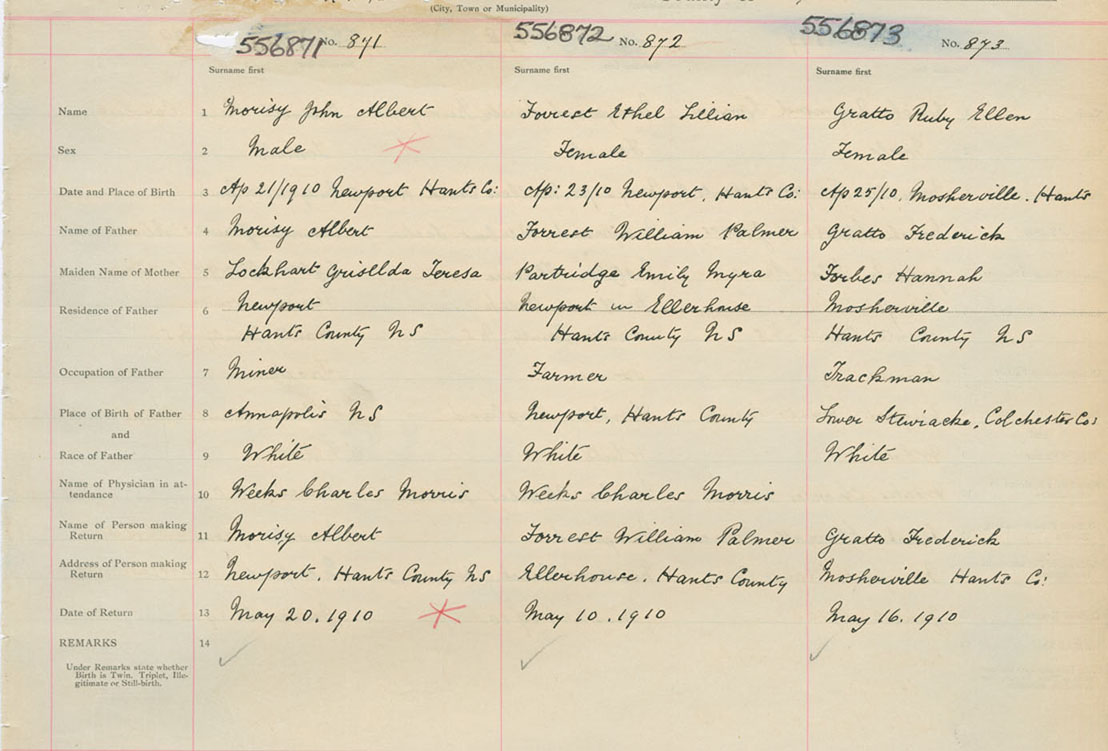 (City, Town or Municipality)
556871 No. 871 556872 No. 872 556873 No. 873
Surname first Surname first Surname first
Name 1 Morisy John Albert Forrest Ethel Lillian Gratto Ruby Ellen
Sex 2 Male Female Female
Date and Place of Birth 3 Ap 21/1910 Newport Hants Co: Ap: 23/10 Newport, Hants Co: Ap 25/10, Mosherville. Hants
Name of Father 4 Morisy Albert Forrest William Palmer Gratto Frederick
Maiden Name of Mother 5 Lockhart Griselda Teresa Partridge Emily Myra Forbes Hannah
Residence of Father 6 Newport Newport in Ellerhouse Mosherville
Hants County NS Hants County NS Hants County NS
Occupation of Father 7 Miner Farmer Trackman
Place of Birth of Father 8 Annapolis NS Newport, Hants County Lower Stewiacke, Colchester Co:
and
Race of Father 9 White White White
Name of Physician in at-
tendance 10 Weeks Charles Morris Weeks Charles Morris
Name of Person making
Return 11 Morisy Albert Forrest William Palmer Gratto Frederick
Address of Person making
Return 12 Newport, Hants County NS Ellerhouse. Hants County Mosherville Hants Co:
Date of Return 13 May 20. 1910 May 10. 1910 May 16. 1910
REMARKS 14
Under Remarks state whether
Birth is Twin. Triplet, Ille-
gitimate or Still-birth.